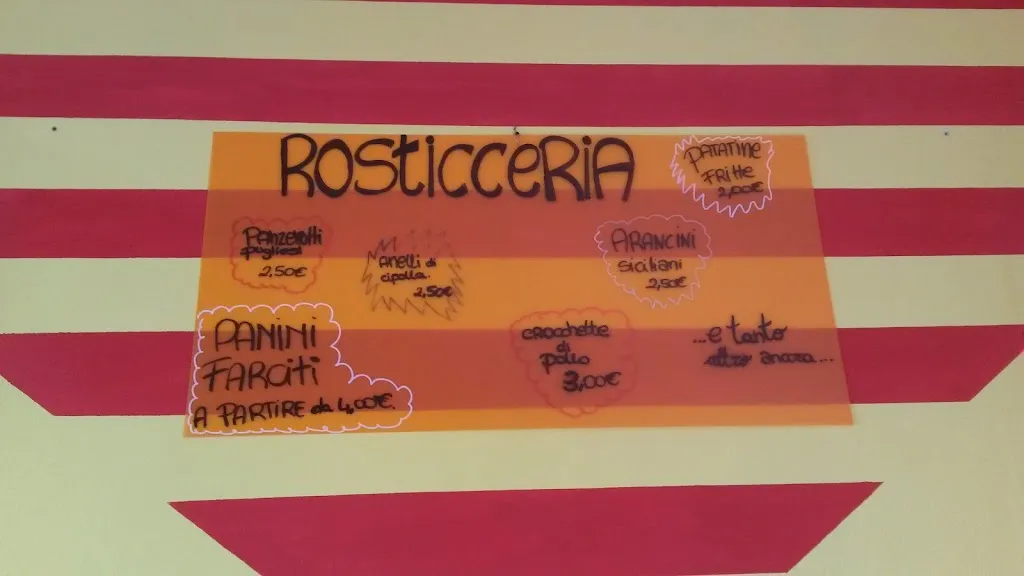 ROSticceRiA
PATATiNE
FRitte
2,00€
PANZEROtti
pugliesi
2,50€
ANelli di
cipolla.
2,50€
ARANCiNi
siciliani
2,50€
PANiNi
FARCiti
A PARTiRE da 4,00€.
CROCChette
di
pollo
3,00€
...e tanto
altro ancora...